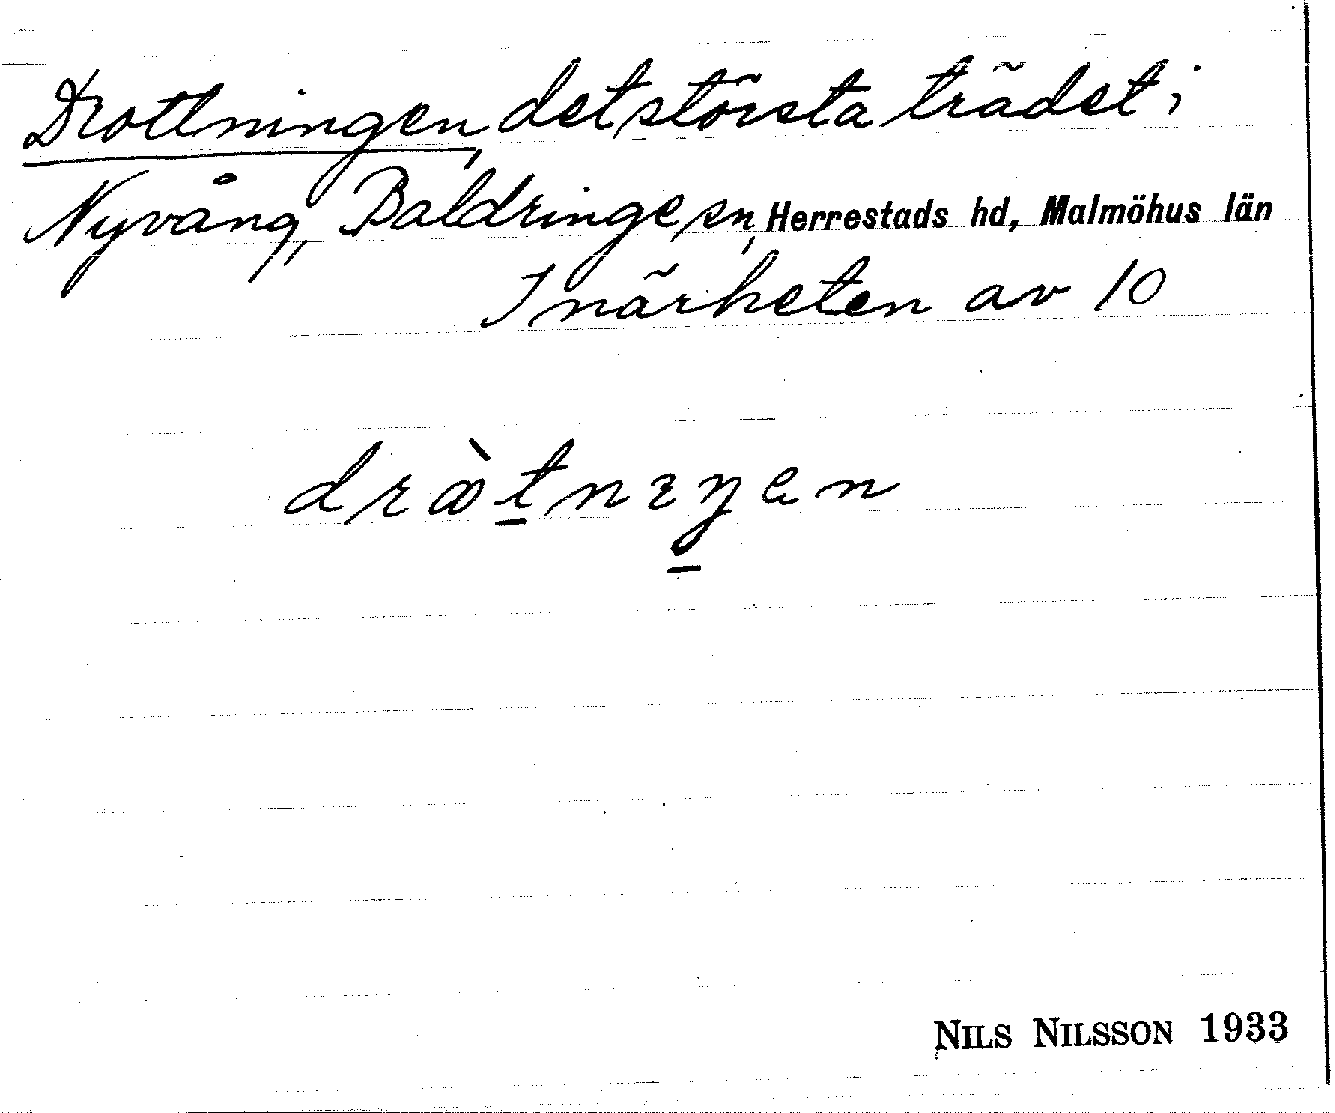 Drottningen, det största trädet i
Nyvång, Baldringe sn, Herrestads hd, Malmöhus län
I närheten av 10
NILS NILSSON 1933